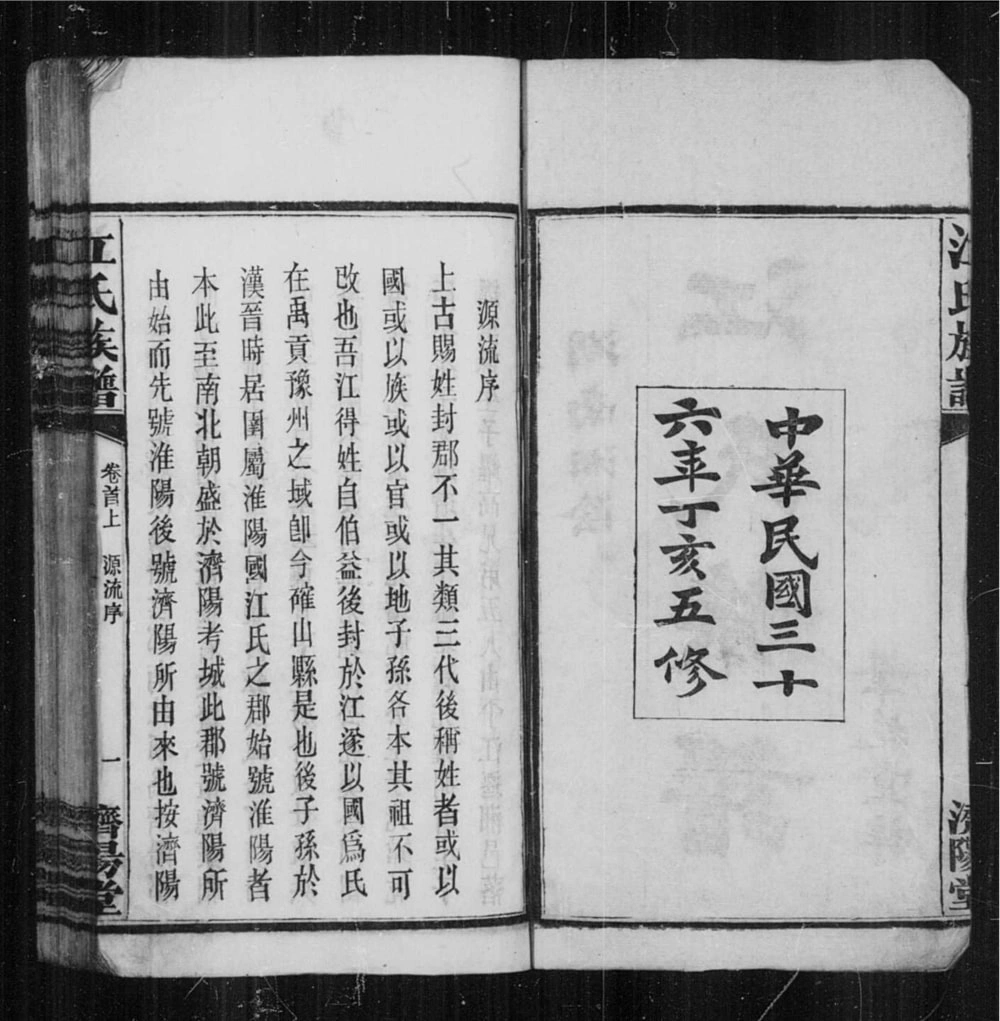 江氏族譜
濟陽堂
中華民國三十
六年丁亥五修
源流序
上古賜姓封郡不一其類三代後稱姓者或以
國或以族或以官或以地子孫各本其祖不可
改也吾江得姓自伯益後封於江遂以國爲氏
在禹貢豫州之域卽今確山縣是也後子孫於
漢晉時居圉屬淮陽國江氏之郡始號淮陽者
本此至南北朝盛於濟陽考城此郡號濟陽所
由始而先號淮陽後號濟陽所由來也按濟陽
江氏族譜
卷首上 源流序
一
濟陽堂